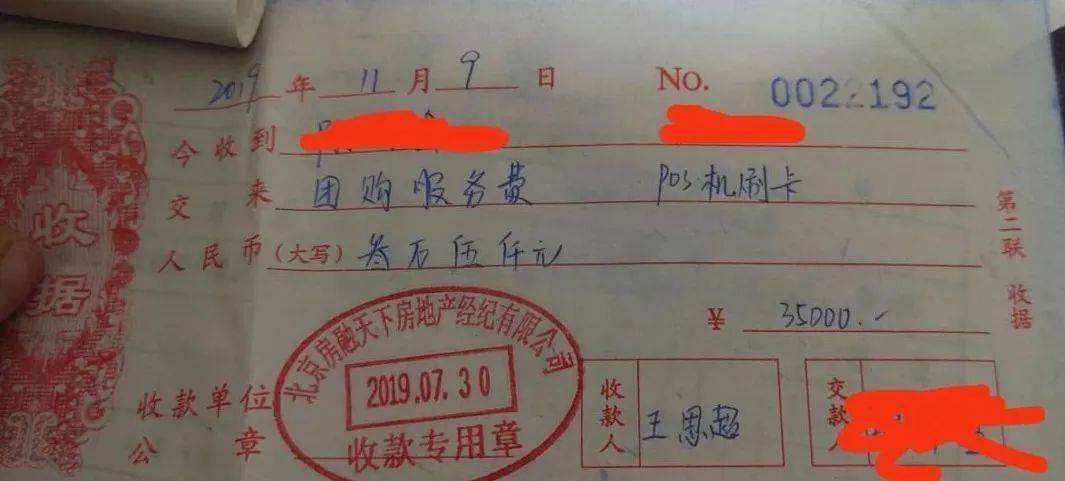 2019 年 11 月 9 日 No. 0022192
今收到
交来 团购服务费 POS机刷卡
人民币(大写) 叁万伍仟元
¥ 35000.-
收款单位
公章
北京房融天下房地产经纪有限公司
2019.07.30
收款专用章
收款人 王思超
交款人
第二联 收据
收据